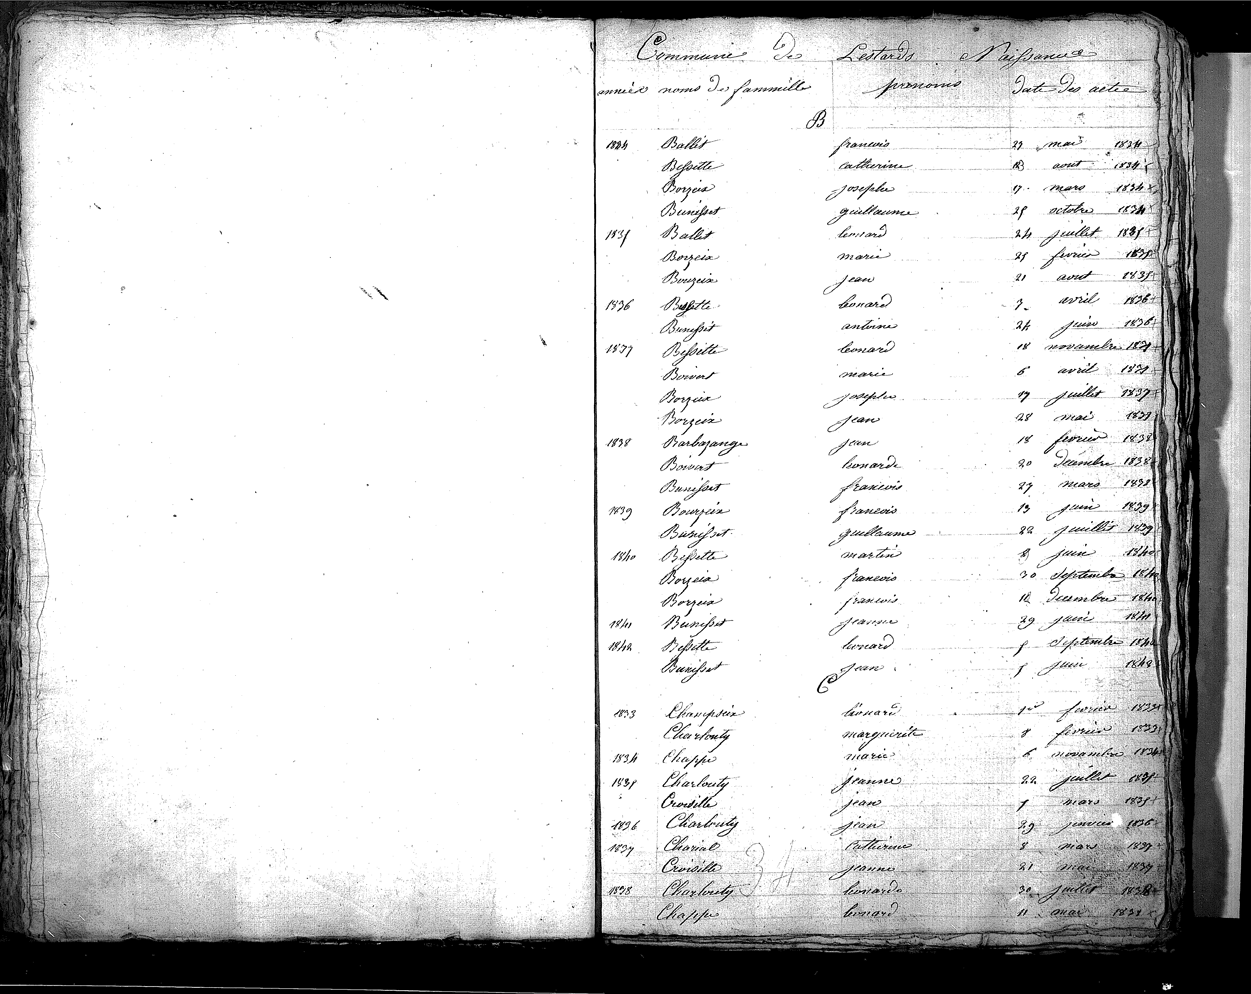 Commune de Lestards Naissance
années noms de fammille prenoms date des actes
B
1834 Ballet francois 29 mai 1834
Bessette catherine aout 1834
Borzeix josephe 17 mars 1834
Bunisset guillaume 25 octobre 1834
1835 Ballet leonard 24 juillet 1835
Borzeix marie 25 fevrier 1835
Bouzeix jean 21 aout 1835
1836 Bessette leonard 7 avril 1836
Bunisset antoine 24 juin 1836
1837 Bessette leonard 18 novambre 1837
Boivert marie 6 avril 1837
Borzeix josephe 17 juillet 1837
Borzeix jean 28 mai 1837
1838 Barbazange jean 18 fevrier 1838
Boivert leonarde 20 decembre 1838
Bunisset francois 27 mars 1838
1839 Bourzeix francois 13 juin 1839
Bunisset guillaume 22 juillet 1839
1840 Bessette martin 8 juin 1840
Borzeix francois 30 septembre 1840
Borzeix francois 12 decembre 1840
1841 Bunisset jeanne 29 juin 1841
1842 Bessette leonard 5 septembre 1842
Bunisset jean 5 juin 1842
C
1833 Champseix léonard 1er fevrier 1833
Charlouty marguerite 8 fevrier 1833
1834 Chappe marie 6 novambre 1834
1835 Charlouty jeanne 22 juillet 1835
Croisille jean 5 mars 1835
1836 Charlouty jean 29 janvier 1836
1837 Charial catherine 8 mars 1837
Croisille jeanne 21 mai 1837
34
1838 Charlouty leonarde 30 juillet 1838
Chappe leonard 11 mai 1838